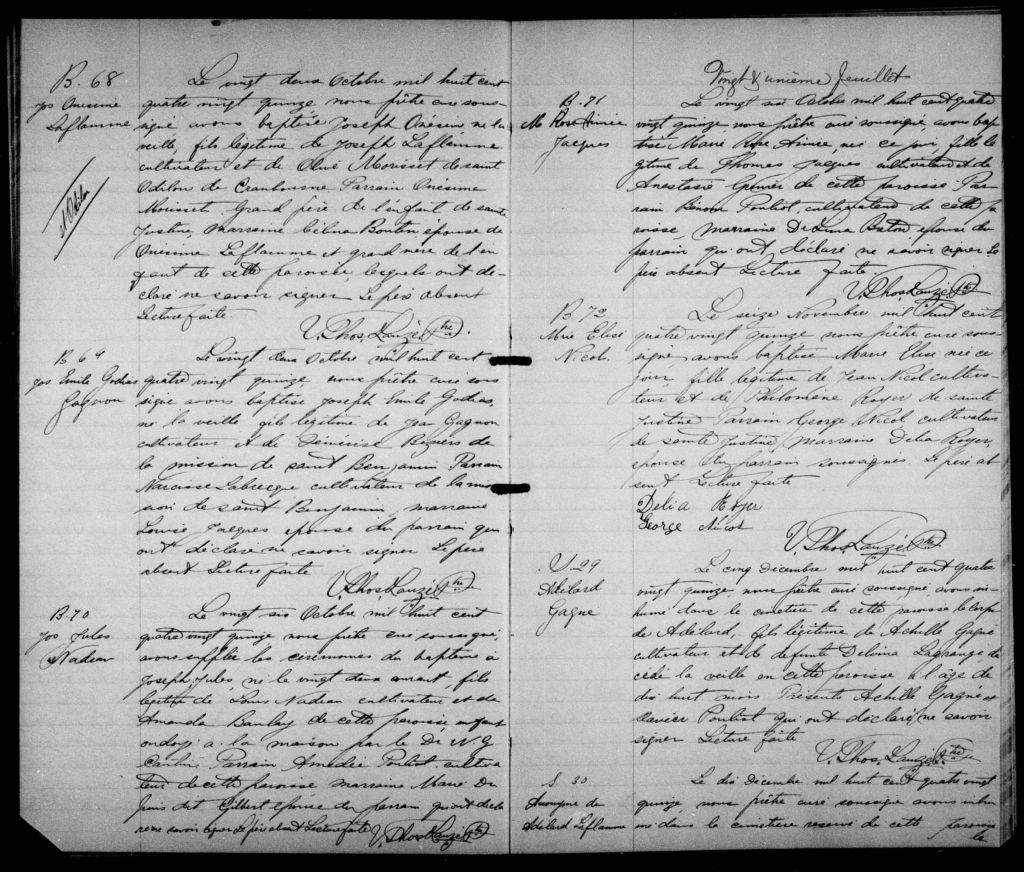 B. 68
Jos Onésime
Laflamme
St Odilon
Le vingt deux Octobre mil huit cent
quatre vingt quinze nous prêtre curé sous-
signé avons baptisé Joseph Onésime né la
veille, fils légitime de Joseph Laflamme
cultivateur et de Morisset de saint
Odilon de Cranbourne Parrain Onésime
Morisset Grand père de l'enfant de sainte
Justine, Marraine Célina Boutin épouse de
Onésime Laflamme et grand mère de l'en
fant de cette paroisse, lesquels ont dé-
claré ne savoir signer Le père absent
Lecture faite
V. Phos. Lauzé ptre.
B 69
Jos Emile Godias
Gagnon
Le vingt deux Octobre mil huit cent
quatre vingt quinze nous prêtre curé sous
signé avons baptisé Joseph Emile Godias,
né la veille fils légitime de Jean Gagnon
cultivateur et de de
la mission de saint Benjamin Parrain
Narcisse Labrecque cultivateur de la mis
sion de saint Benjamin, marraine
Louise Jacques épouse du parrain qui
ont déclaré ne savoir signer Le père
absent Lecture faite
V. Phos. Lauzé ptre
B. 70
Jos Jules
Nadeau
Le vingt six Octobre mil huit cent
quatre vingt quinze nous prêtre curé soussigné,
avons supplée les cérémonies du baptême à
Joseph Jules, né le vingt deux courant fils
légitime de Louis Nadeau cultivateur et de
Amanda de cette paroisse enfant
ondoyé a la maison par le Dr N G
Parrain Amedée Pouliot cultiva
teur de cette paroisse marraine Marie Du
puis dit Gilbert épouse du parrain qui ont décla
ré ne savoir signer Le père absent Lecture faite V. Phos. Lauzé ptre
Vingt & unième feuillet
B. 71
M Rose Aimée
Jacques
Le vingt six Octobre mil huit cent quatre
vingt quinze, nous prêtre curé soussigné, avons bap
tisée Marie Rose Aimée, née ce jour, fille lé
gitime de Thomas Jacques cultivateur et de
Anastasie Grenier de cette paroisse Par
rain Bénoni Pouliot cultivateur de cette pa
roisse marraine Delima Breton épouse du
parrain qui ont déclaré ne savoir signer Le
père absent Lecture faite.
V. Phos. Lauzé ptre
B 72
Mrie Elise
Nicol.
Le seize Novembre mil huit cent
quatre vingt quinze nous prêtre curé sous-
signé avons baptisé Marie Elise née ce
jour fille légitime de Jean Nicol cultiva-
teur et de Philomène Royer de sainte
Justine Parrain George Nicol cultivateur
de sainte Justine, Marraine Delia Royer,
épouse du parrain soussignés Le père ab
sent Lecture faite
Delia Royer
George Nicol
V. Phos. Lauzé ptre
S. 29
Adélard
Gagné
Le cinq Décembre mil huit cent quatre
vingt quinze, nous prêtre curé soussigné, avons in-
humé dans le cimetière de cette paroisse le corps
de Adélard, fils légitime de Achille Gagné
cultivateur et de défunte Delvina Lagrange dé
cédé la veille en cette paroisse à l'âge de
dix huit mois Présents Achille Gagné et
Xavier Pouliot qui ont déclaré ne savoir
signer Lecture faite
V. Phos. Lauzé ptre
S. 30
Anonyme de
Adélard Laflamme
Le dix Décembre mil huit cent quatre vingt
quinze nous prêtre curé soussigné avons inhu
mé dans le cimetière reservé de cette paroisse
le